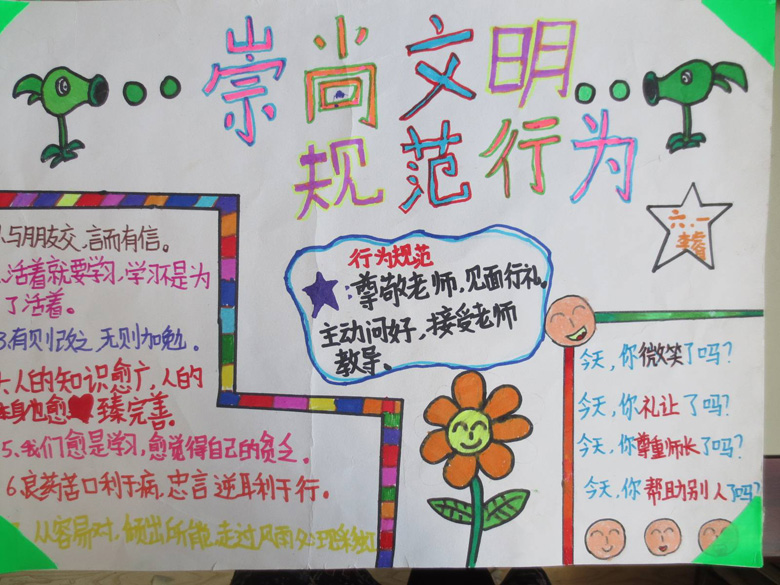 崇尚文明
规范行为
六.一
1.与朋友交.言而有信。
.活着就要学习,学习不是为
了活着。
3.有则改之,无则加勉。
人的知识愈广,人的
本身也愈 臻完善。
5、我们愈是学习,愈觉得自己的贫乏。
6良药苦口利于病,忠言逆耳利于行。
从容易对,倾出所能,走过风雨
行为规范
:尊敬老师,见面行礼。
主动问好,接受老师
教导。
今天,你微笑了吗?
今天,你礼让了吗?
今天,你尊重师长了吗?
今天,你帮助别人了吗?